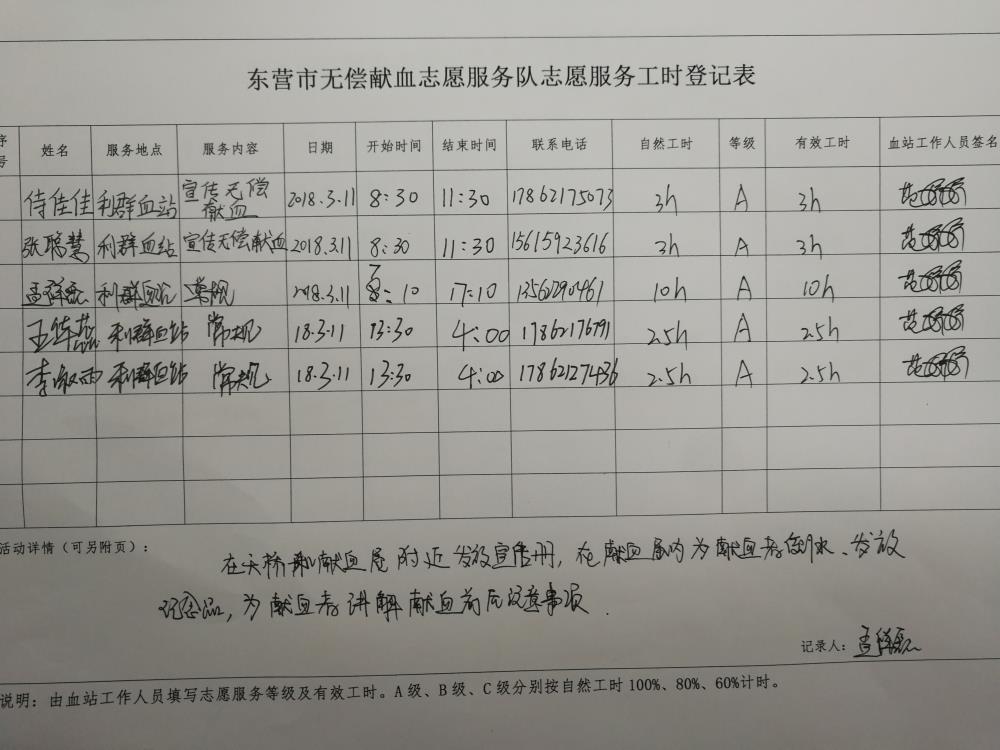 东营市无偿献血志愿服务队志愿服务工时登记表
序号 姓名 服务地点 服务内容 日期 开始时间 结束时间 联系电话 自然工时 等级 有效工时 血站工作人员签名
侍佳佳 利群血站 宣传无偿献血 2018.3.11 8:30 11:30 17862175073 3h A 3h
张聪慧 利群血站 宣传无偿献血 2018.3.11 8:30 11:30 15615923616 3h A 3h
利群血站 常规 2018.3.11 :10 17:10 13561290461 10h A 10h
利群血站 常规 18.3.11 13:30 4:00 17862176791 2.5h A 2.5h
李淑雨 利群血站 常规 18.3.11 13:30 4:00 17862127436 2.5h A 2.5h
活动详情（可另附页）：
在天桥和献血屋附近发放宣传册，在献血屋内为献血者倒水、发放
纪念品，为献血者讲解献血前后注意事项.
记录人：
说明：由血站工作人员填写志愿服务等级及有效工时。A级、B级、C级分别按自然工时100%、80%、60%计时。